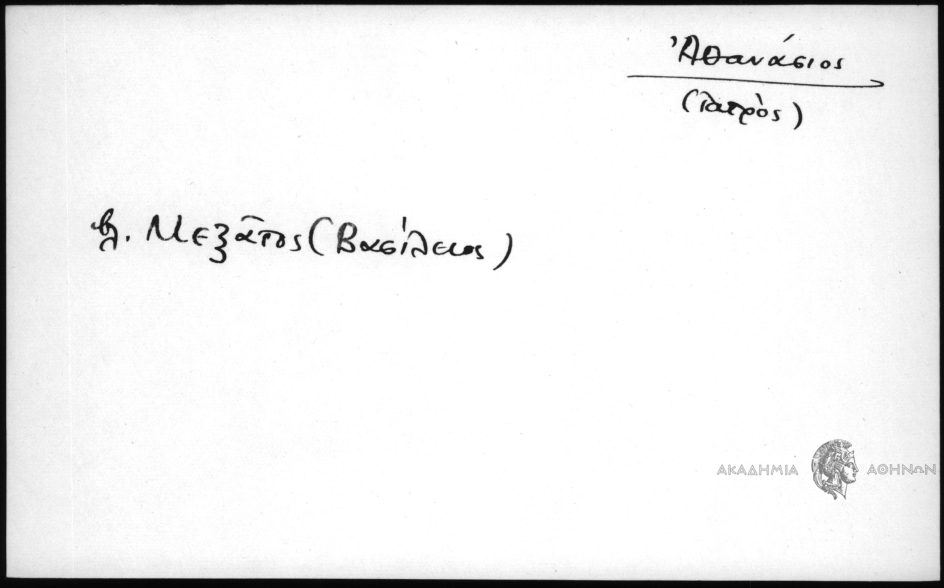 Ἀθανάσιος
(ἰατρὸς)
βλ. Μεξᾶτος (Βασίλειος)
ΑΚΑΔΗΜΙΑ ΑΘΗΝΩΝ